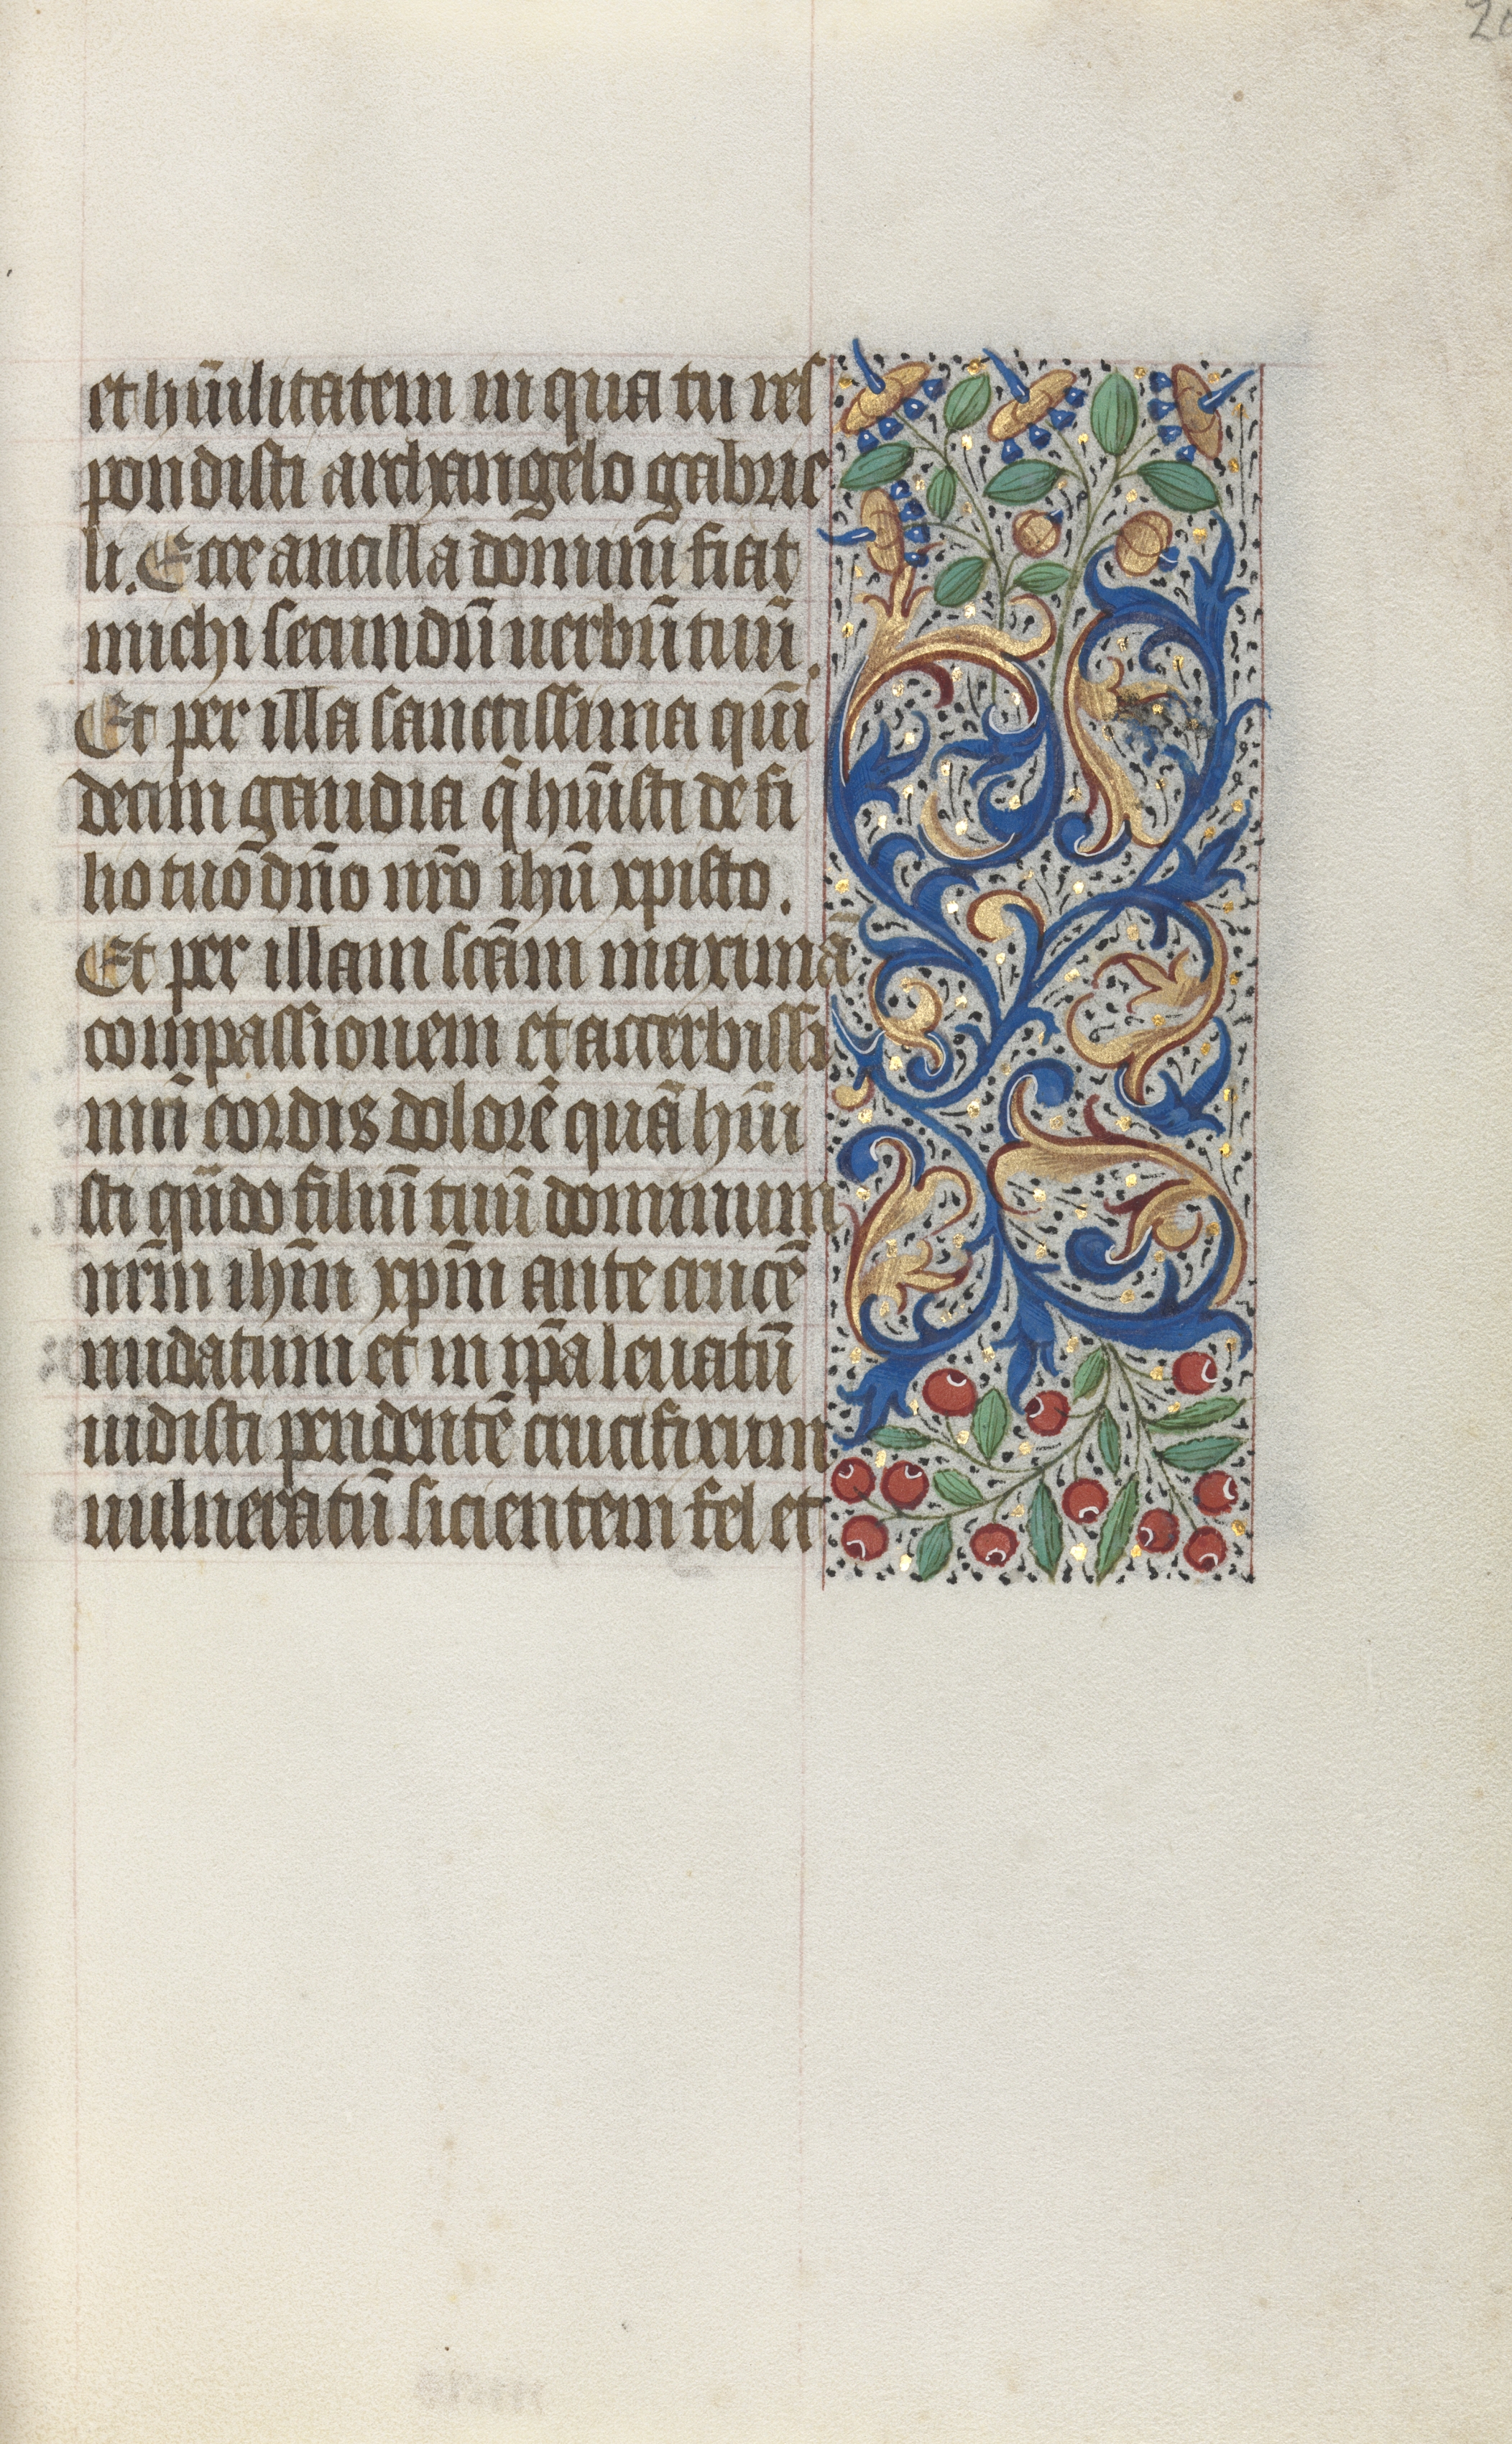 20
et hūilitatem in qua tu res
pondisti archangelo gabrie
li. Ecce ancilla domini fiat
michi secundū uerbū tuū.
Et per illa sanctissima qūi
decim gaudia q̄ hūisti de fi
lio tuo dn̄o nr̄o ihū xpisto.
Et per illam scām maximā
compassionem et accerbissi
mū cordis dolorē quā hūi
sti qn̄do filiū tuū dominum
nr̄m ihm̄ xpm̄ ante crucē
nudatum et in ip̄a leuatū
uidisti pendentē crucifixum
uulneratū sicientem fel et